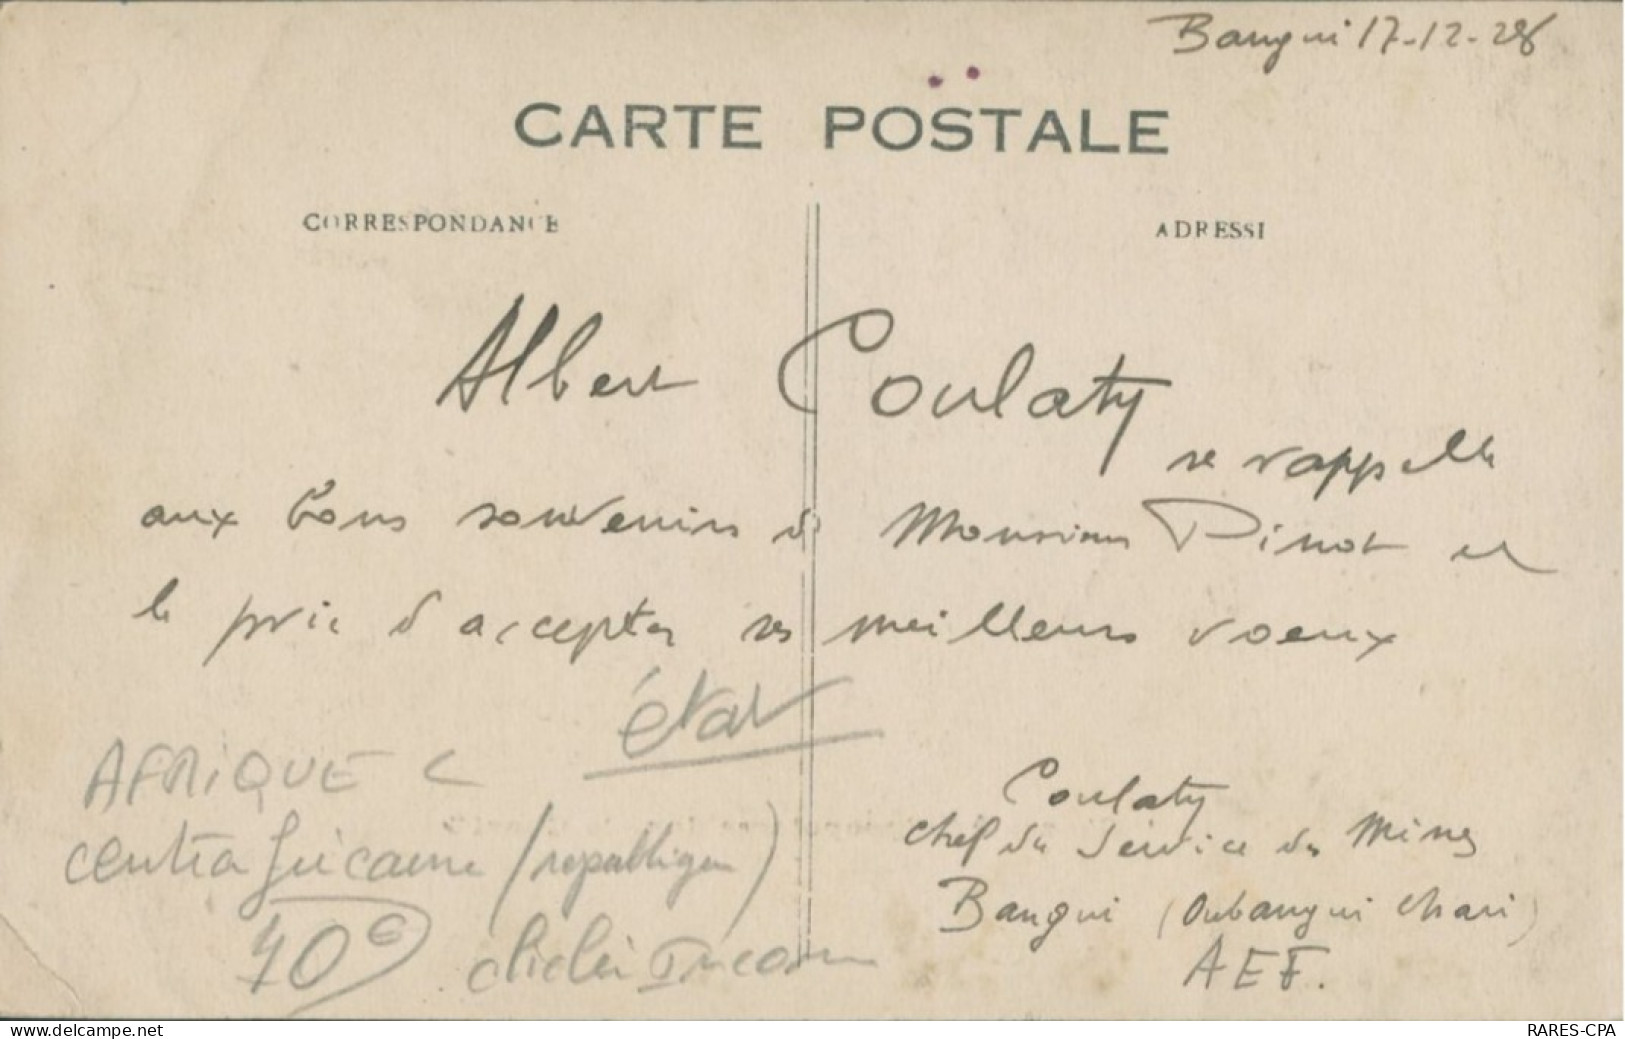 Bangui 17-12-28
CARTE POSTALE
CORRESPONDANCE
ADRESSE
Albert Coulaty
se rappelle
aux bons souvenirs de Monsieur Pinot et
le prie d'accepter ses meilleurs voeux
état
AFRIQUE C
centrafricaine (republique)
40€
cliché
Coulaty
chef du Service des Mines
Bangui (Oubangui Chari)
AEF.
www.delcampe.net
RARES-CPA